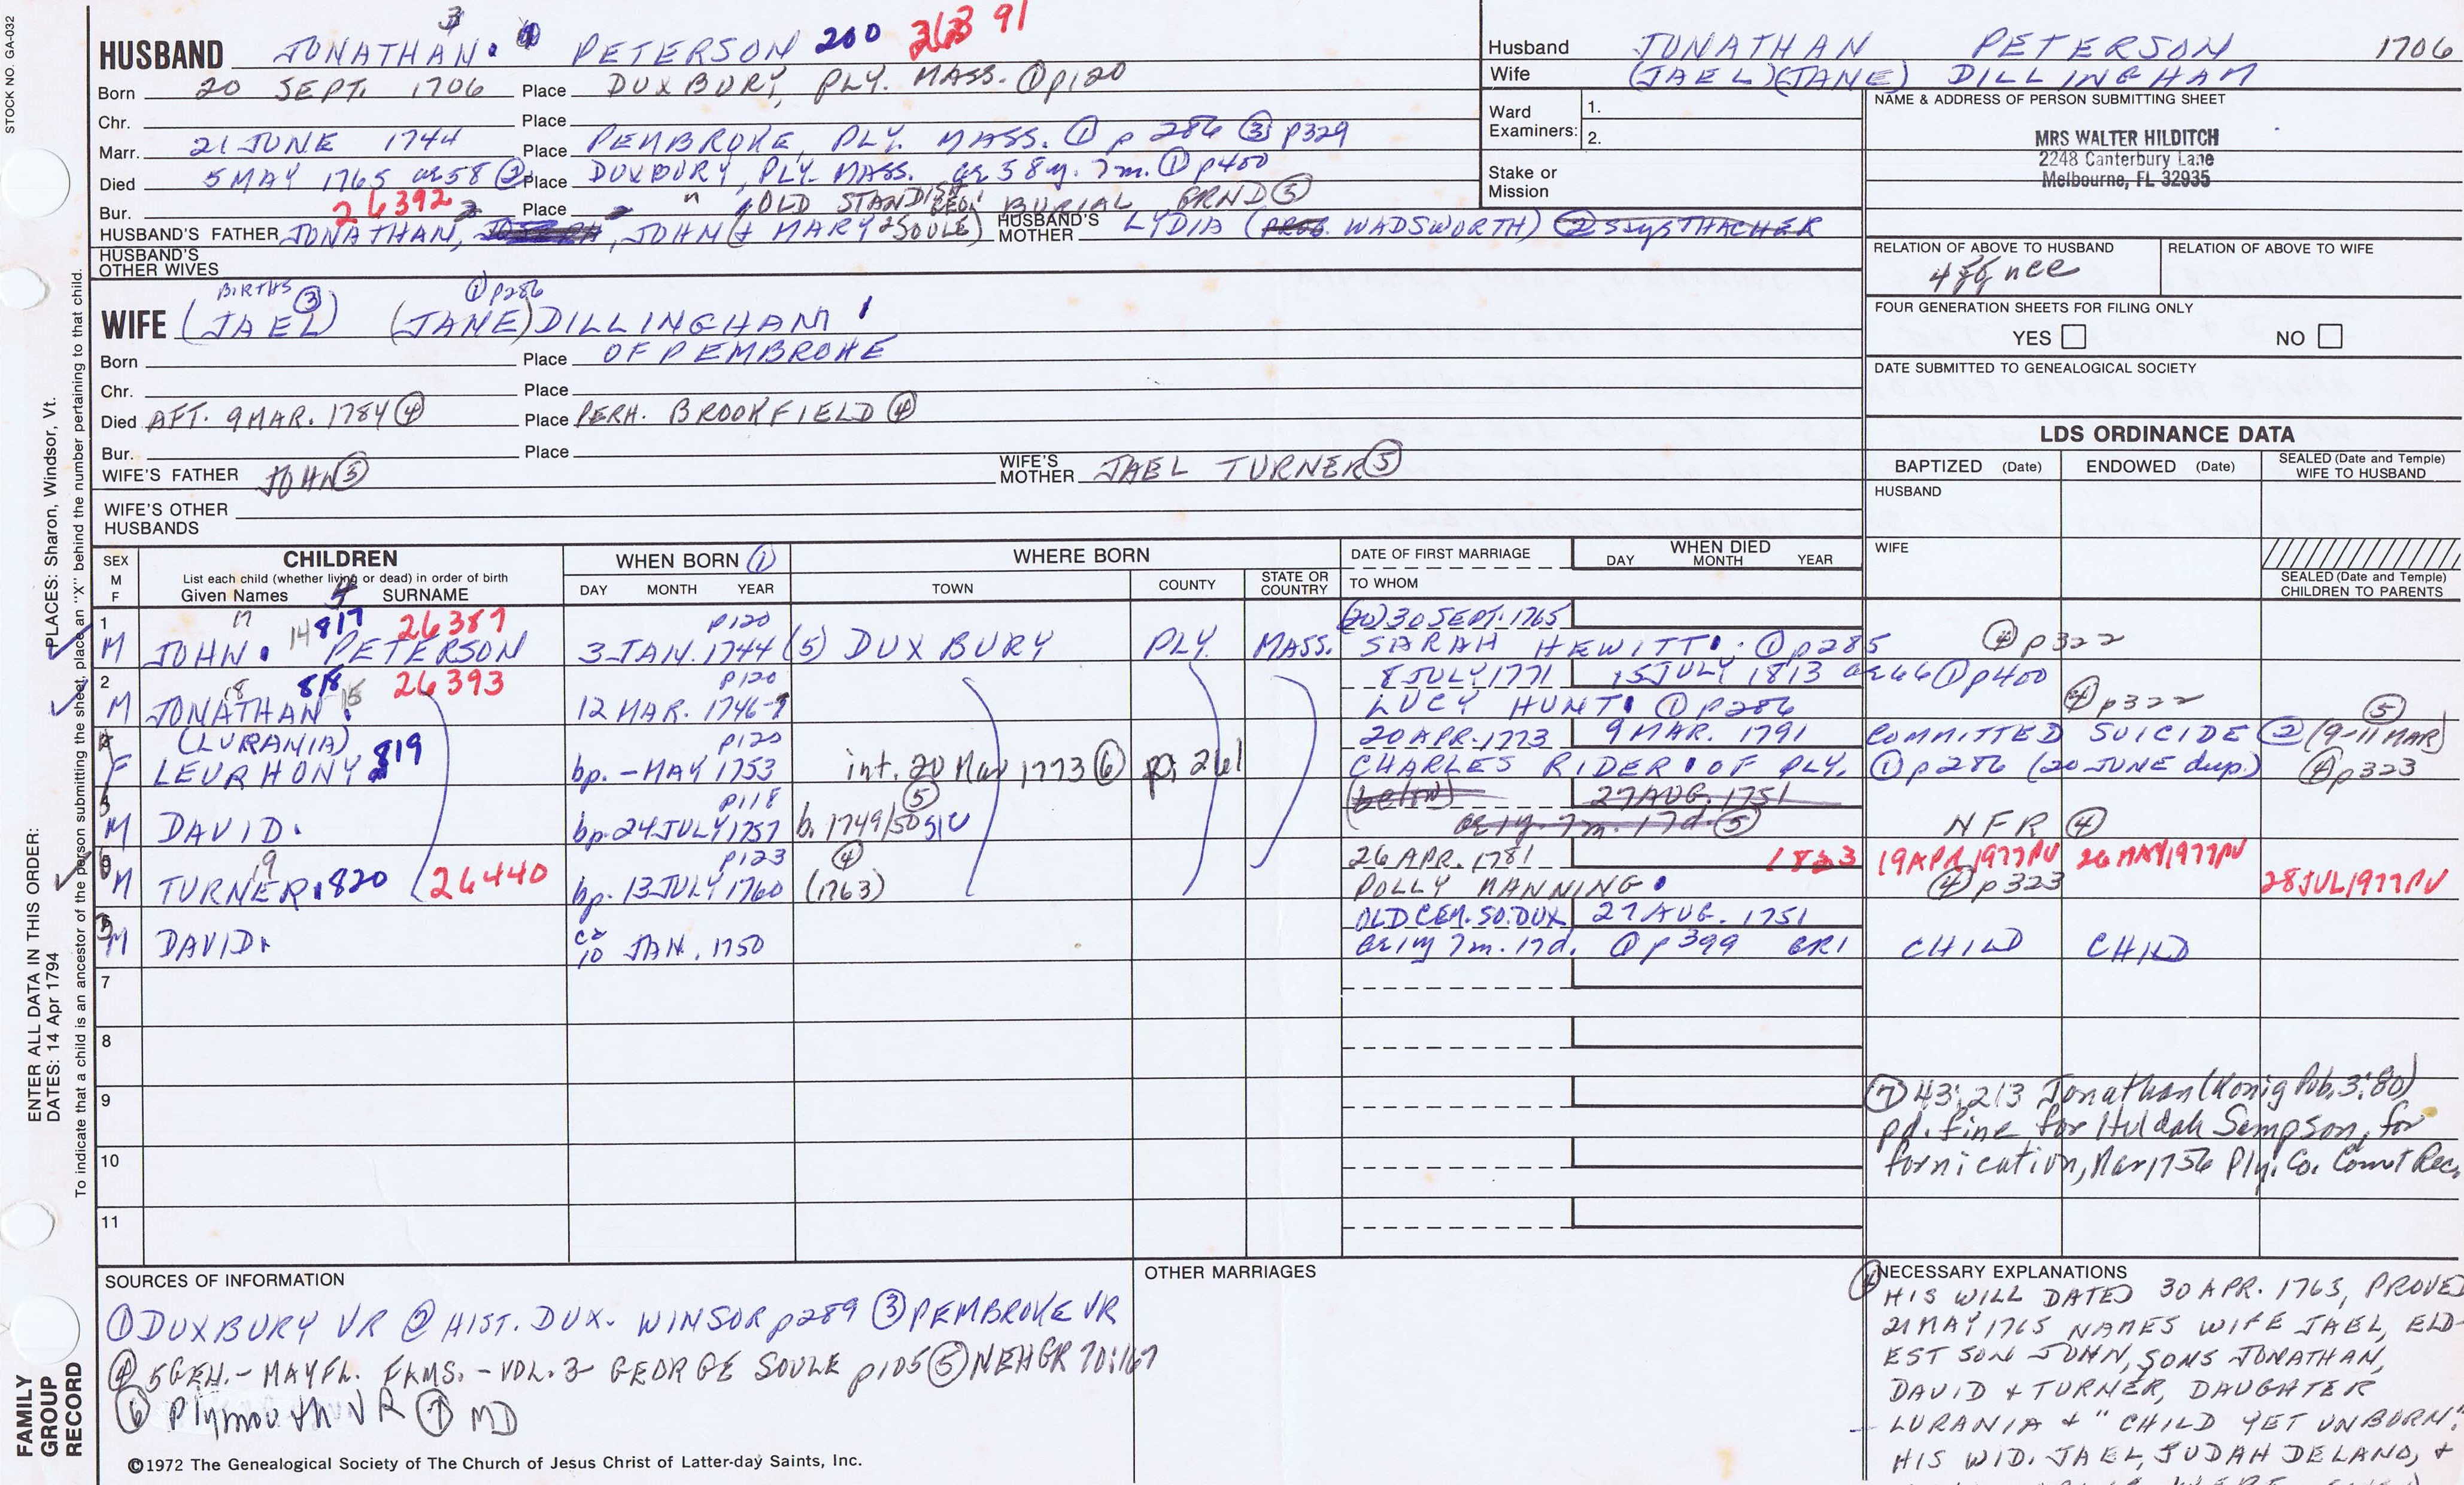 STOCK NO. GA-032
HUSBAND JONATHAN. PETERSON 200 26391
3
Born 20 SEPT. 1706 Place DUXBURY, PLY. MASS. ① p120
Chr. Place
Marr. 21 JUNE 1744 Place PEMBROKE, PLY. MASS. ① p 286 ③ p329
Died 5 MAY 1765 ae 58 ② Place DUXBURY, PLY. MASS. ae 58y. 7m. ① p400
Bur. 26392 Place " OLD STANDISH BURIAL GRND ⑤
HUSBAND'S FATHER JONATHAN, JOHN (+ MARY SOULE) HUSBAND'S MOTHER LYDIA (PROB. WADSWORTH) ② says THACHER
HUSBAND'S OTHER WIVES
BIRTHS ③ ① p286
WIFE (JAEL) (JANE) DILLINGHAM
Born Place OF PEMBROKE
Chr. Place
Died AFT. 9 MAR. 1784 ④ Place PERH. BROOKFIELD ④
Bur. Place
WIFE'S FATHER JOHN ⑤ WIFE'S MOTHER JAEL TURNER ⑤
WIFE'S OTHER HUSBANDS
Husband JONATHAN PETERSON 1706
Wife (JAEL) (JANE) DILLINGHAM
Ward Examiners: 1.
2.
Stake or Mission
NAME & ADDRESS OF PERSON SUBMITTING SHEET
MRS WALTER HILDITCH
2248 Canterbury Lane
Melbourne, FL 32935
RELATION OF ABOVE TO HUSBAND RELATION OF ABOVE TO WIFE
FOUR GENERATION SHEETS FOR FILING ONLY
YES NO
DATE SUBMITTED TO GENEALOGICAL SOCIETY
LDS ORDINANCE DATA
BAPTIZED (Date) ENDOWED (Date) SEALED (Date and Temple) WIFE TO HUSBAND
HUSBAND
WIFE
SEALED (Date and Temple) CHILDREN TO PARENTS
SEX M F CHILDREN WHEN BORN ① WHERE BORN DATE OF FIRST MARRIAGE WHEN DIED
List each child (whether living or dead) in order of birth
Given Names SURNAME DAY MONTH YEAR TOWN COUNTY STATE OR COUNTRY TO WHOM DAY MONTH YEAR
1 17 14 817 26387 p120 (20) 30 SEPT. 1765
M JOHN. PETERSON 3 JAN. 1744 (5) DUXBURY PLY. MASS. SARAH HEWITT. ① p285 ④ p322
2 18 818 15 26393 p120 8 JULY 1771 15 JULY 1813 ae 66 ① p400
M JONATHAN. 12 MAR. 1746-7 LUCY HUNT. ① p286 ④ p322
(LURANIA) 819 p120 20 APR. 1773 9 MAR. 1791 COMMITTED SUICIDE ② (9-11 MAR) ⑤
F LEURHONY bp. - MAY 1753 int. 20 Mar 1773 ⑥ p. 261 CHARLES RIDER. OF PLY. ① p286 (20 JUNE dup.) ④ p323
p118 ⑤ (below) 27 AUG. 1751
M DAVID. bp. 24 JULY 1757 b. 1749/50 SIC ae 1y. 7m. 17d. ⑤ NFR ④
19 p123 ④ 26 APR. 1781 1823 19 APR 1977 PV 26 MAY 1977 PV
M TURNER. 820 26440 bp. 13 JULY 1760 (1763) POLLY MANNING. ④ p323 28 JUL 1977 PV
OLD CEM. SO. DUX 27 AUG. 1751
M DAVID. ca 10 JAN. 1750 ae 1y 7m. 17d. ① p 399 GR1 CHILD CHILD
7
8
9
10
11
⑦ 43:213 Jonathan (Konig Pub. 3:80)
pd. fine for Huldah Sampson, for
fornication, Mar 1756 Ply. Co. Court Rec.
SOURCES OF INFORMATION
① DUXBURY VR ② HIST. DUX. WINSOR p289 ③ PEMBROKE VR
④ 5 GEN. - MAYFL. FAMS. - VOL. 3 GEORGE SOULE p105 ⑤ NEHGR 70:167
⑥ Plymouth VR ⑦ MD
OTHER MARRIAGES
④ NECESSARY EXPLANATIONS
HIS WILL DATED 30 APR. 1763, PROVED
21 MAY 1765 NAMES WIFE JAEL, ELD-
EST SON JOHN, SONS JONATHAN,
DAVID + TURNER, DAUGHTER
LURANIA + "CHILD YET UNBORN."
HIS WID. JAEL, JUDAH DELANO, +
©1972 The Genealogical Society of The Church of Jesus Christ of Latter-day Saints, Inc.
FAMILY GROUP RECORD
ENTER ALL DATA IN THIS ORDER:
DATES: 14 Apr 1794
PLACES: Sharon, Windsor, Vt.
To indicate that a child is an ancestor of the person submitting the sheet, place an "X" behind the number pertaining to that child.